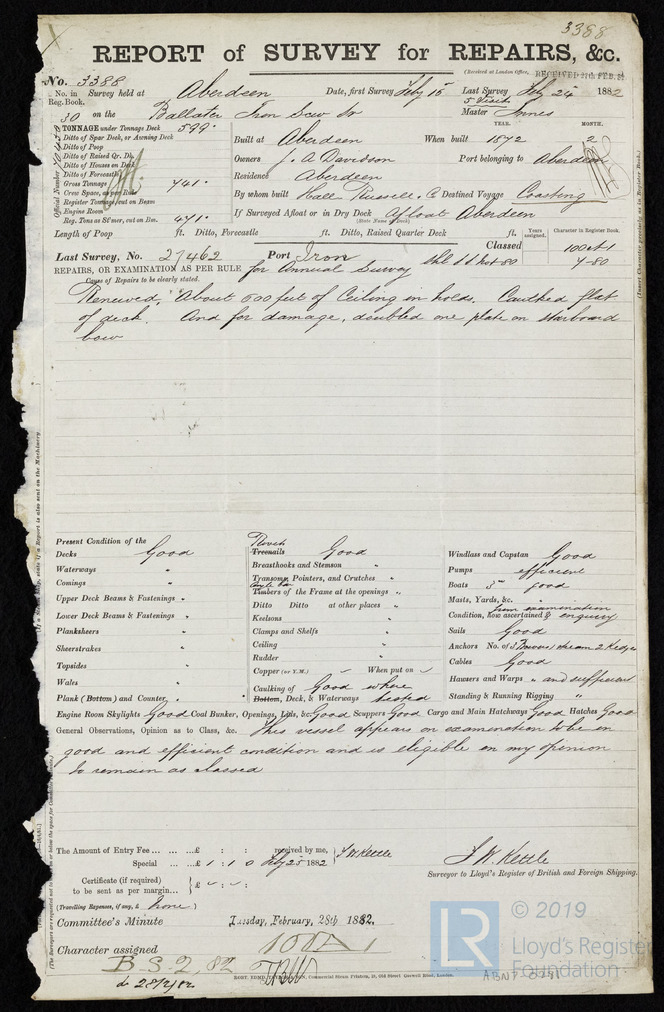 3388
REPORT of SURVEY for REPAIRS, &c.
(Received at London Office, RECEIVED 27th FEB. 82
No. 3388
No. in Survey held at Aberdeen Date, first Survey Feby 15 Last Survey Feby 25 1882
Reg. Book. 5 Visits
30 on the Ballater Iron Scw Sr Master Innes
TONNAGE under Tonnage Deck 599 YEAR. MONTH.
Ditto of Spar Deck, or Awning Deck Built at Aberdeen When built 1872 2
Ditto of Poop
Ditto of Raised Qr. Dk. Owners J. A Davidson Port belonging to Aberdeen
Ditto of Houses on Deck
Ditto of Forecastle Residence Aberdeen
Gross Tonnage 741
Crew Space, as per Rule By whom built Hall Russell & Co Destined Voyage Coasting
Register Tonnage, cut on Beam
Engine Room If Surveyed Afloat or in Dry Dock Afloat Aberdeen
Reg. Tons as St'mer, cut on Bm. 471 (State Name of Dock)
Official Number
Length of Poop ft. Ditto, Forecastle ft. Ditto, Raised Quarter Deck ft. Years assigned. Character in Register Book.
Classed 100 A 1
Last Survey, No. 27462 Port Iron 4-80
REPAIRS, OR EXAMINATION AS PER RULE for Annual Survey
Cause of Repairs to be clearly stated.
Renewed, About 600 feet of Ceiling in holds. Caulked flat
of deck. And for damage, doubled one plate on starboard
bow
Present Condition of the
Decks Good
Waterways "
Comings "
Upper Deck Beams & Fastenings "
Lower Deck Beams & Fastenings "
Planksheers "
Sheerstrakes "
Topsides "
Wales "
Plank (Bottom) and Counter "
Treenails Good
Breasthooks and Stemson "
Transoms, Pointers, and Crutches "
Timbers of the Frame at the openings "
Ditto Ditto at other places "
Keelsons "
Clamps and Shelfs "
Ceiling "
Rudder "
Copper (or Y.M.) When put on
Caulking of Good where
Bottom, Deck, & Waterways tested
Windlass and Capstan Good
Pumps efficient
Boats 3 good
Masts, Yards, &c. "
from examination
Condition, how ascertained & enquiry
Sails Good
Anchors No. of 3 Bower stream 2 Kedges
Cables Good
Hawsers and Warps " and sufficient
Standing & Running Rigging "
Engine Room Skylights Good Coal Bunker, Openings, Lids, &c Good Scuppers Good Cargo and Main Hatchways Good Hatches Good
General Observations, Opinion as to Class, &c. This vessel appears on examination to be in
good and efficient condition and is eligible in my opinion
to remain as classed
The Amount of Entry Fee ... £ : : received by me,
Special ... £ 1 : 1 : 0 Feby 25 1882 J W Kettle
Certificate (if required)
to be sent as per margin... £
(Travelling Expenses, if any, £ None )
J. W. Kettle
Surveyor to Lloyd's Register of British and Foreign Shipping.
Committee's Minute Tuesday, February, 28th 1882.
Character assigned 100 A 1
B.S.2,82
28/2/82
© 2019
LR
Lloyd's Register
Foundation